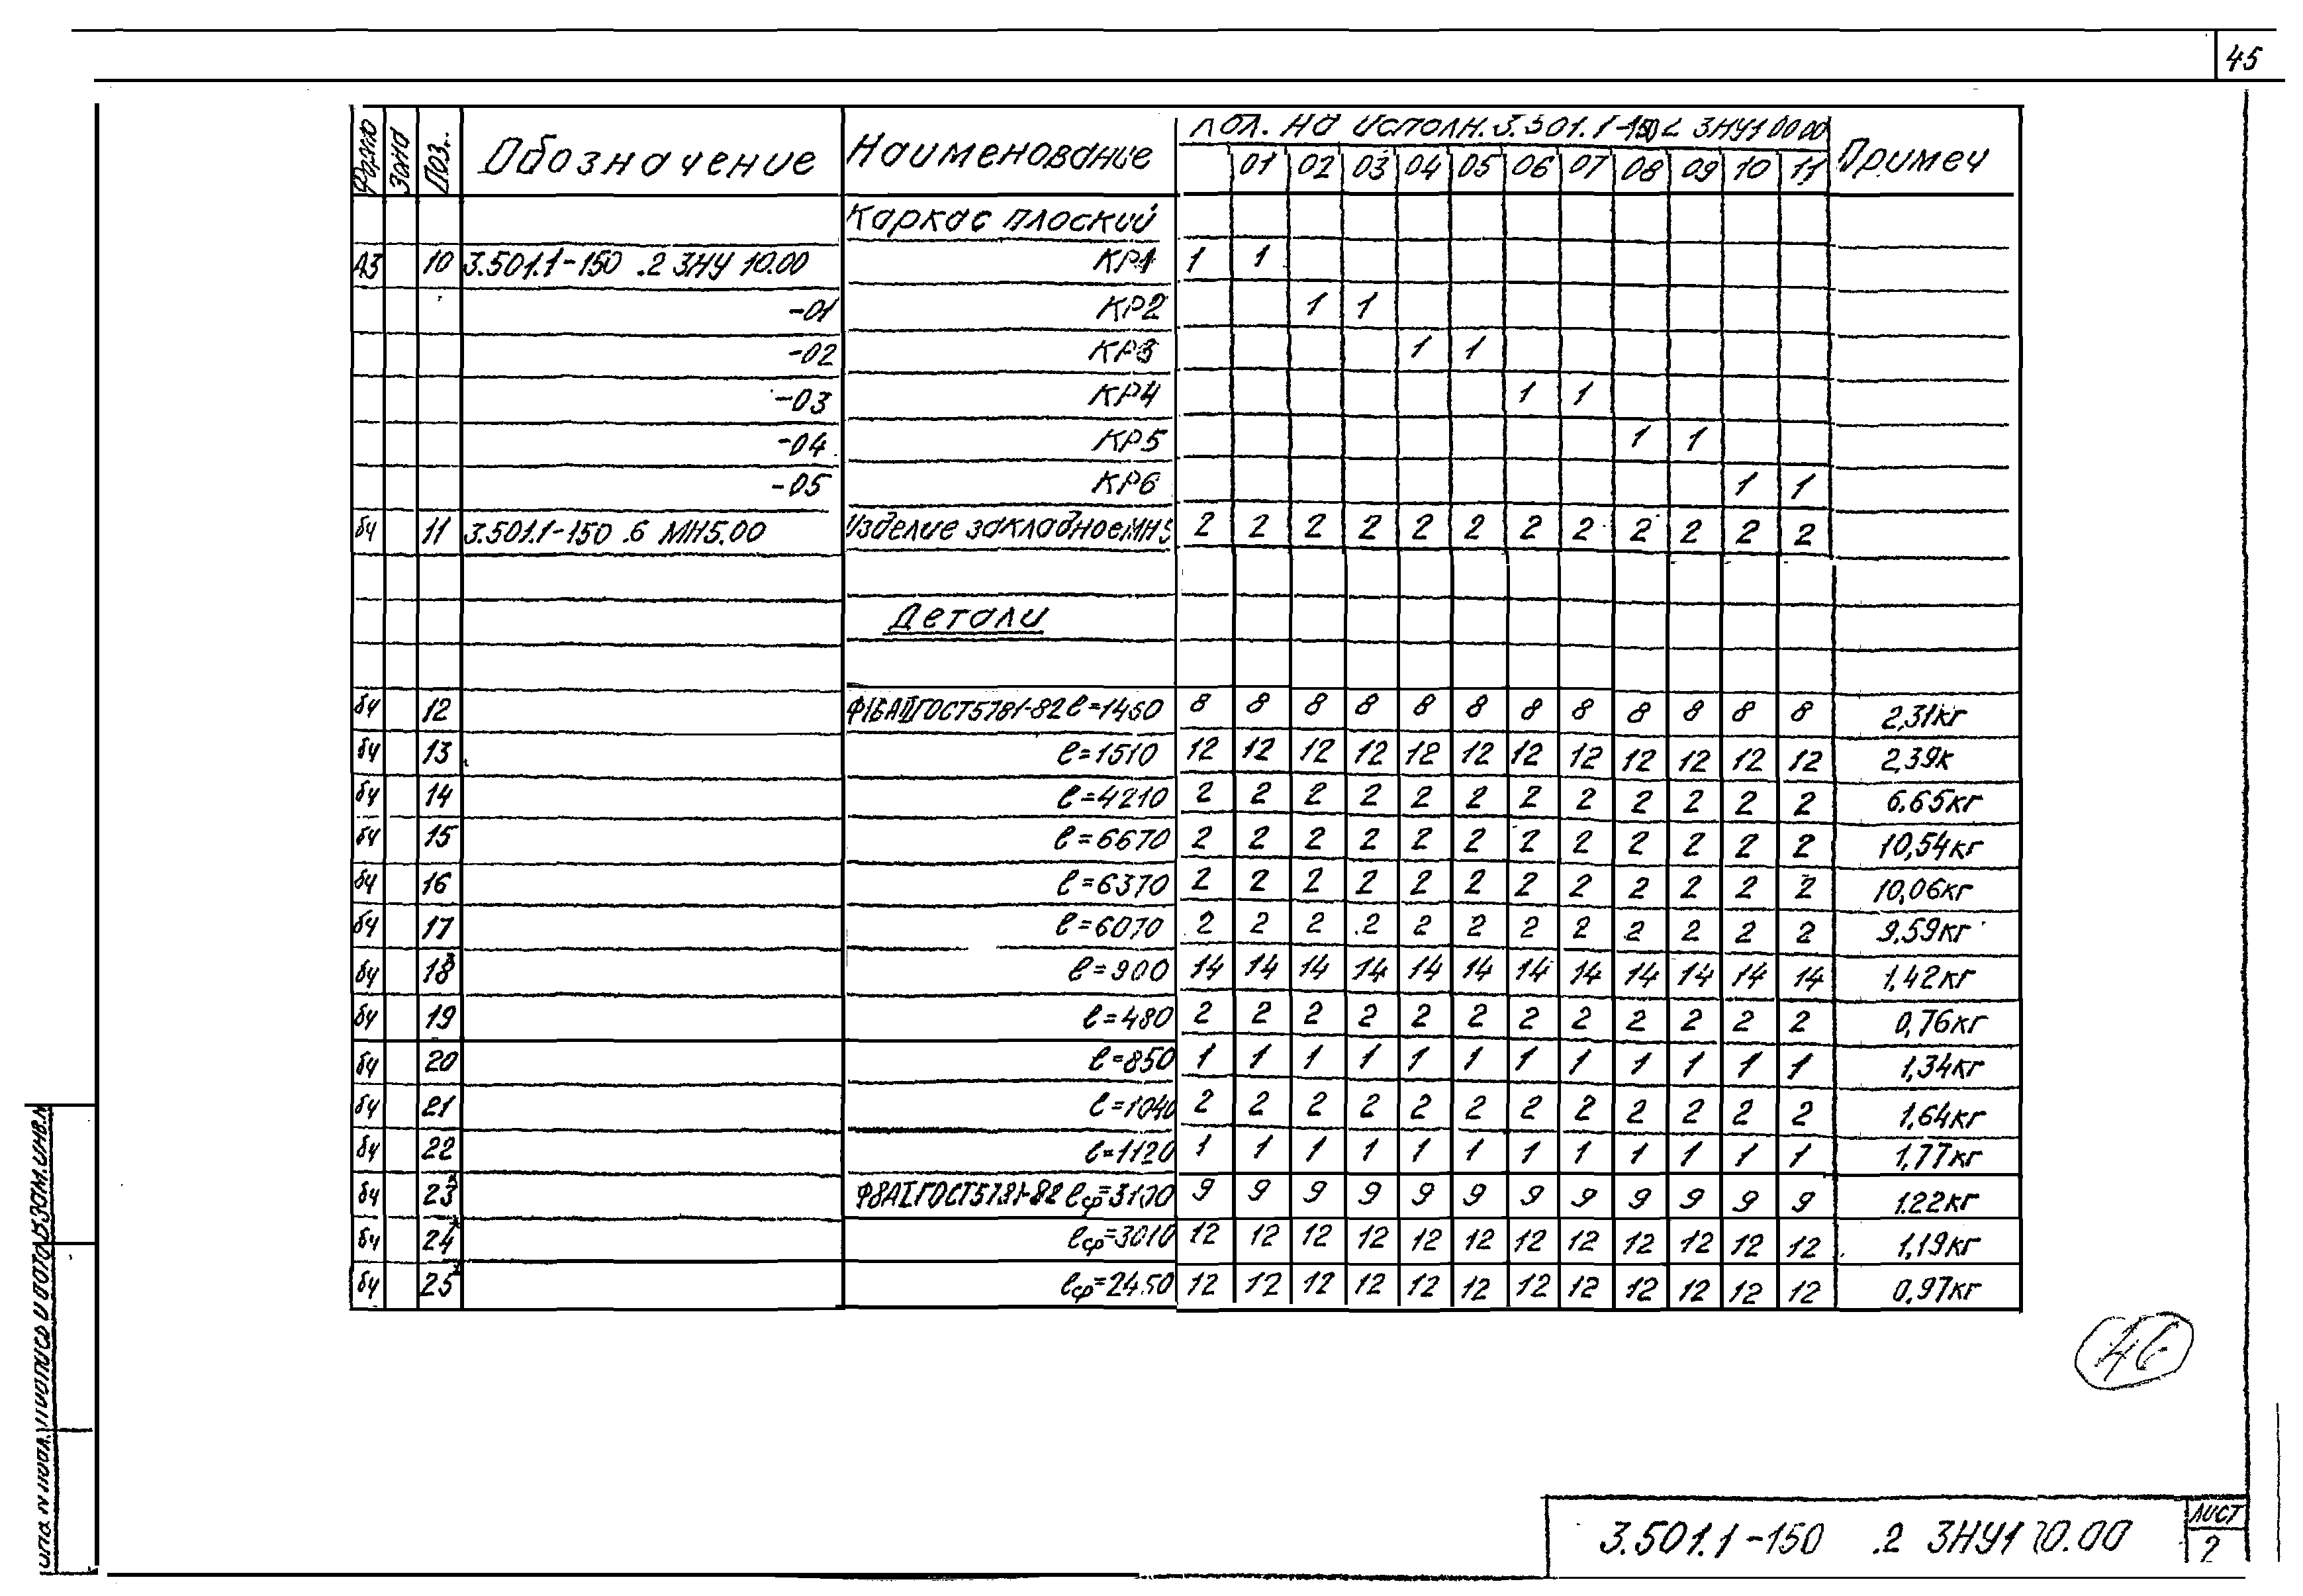 45
Формат Зона Поз. Обозначение Наименование Кол. на исполн. 3.501.1-150.2 3НУ1 00.00 Примеч
01 02 03 04 05 06 07 08 09 10 11
Каркас плоский
А3 10 3.501.1-150 .2 3НУ 10.00 КР1 1 1
-01 КР2 1 1
-02 КР3 1 1
-03 КР4 1 1
-04 КР5 1 1
-05 КР6 1 1
бч 11 3.501.1-150 .6 МН5.00 Изделие закладное МН5 2 2 2 2 2 2 2 2 2 2 2 2
Детали
бч 12 Ф16АII ГОСТ 5781-82 ℓ=1460 8 8 8 8 8 8 8 8 8 8 8 8 2,31кг
бч 13 ℓ=1510 12 12 12 12 12 12 12 12 12 12 12 12 2,39к
бч 14 ℓ=4210 2 2 2 2 2 2 2 2 2 2 2 2 6,65кг
бч 15 ℓ=6670 2 2 2 2 2 2 2 2 2 2 2 2 10,54кг
бч 16 ℓ=6370 2 2 2 2 2 2 2 2 2 2 2 2 10,06кг
бч 17 ℓ=6070 2 2 2 2 2 2 2 2 2 2 2 2 9,59кг
бч 18 ℓ=900 14 14 14 14 14 14 14 14 14 14 14 14 1,42кг
бч 19 ℓ=480 2 2 2 2 2 2 2 2 2 2 2 2 0,76кг
бч 20 ℓ=850 1 1 1 1 1 1 1 1 1 1 1 1 1,34кг
бч 21 ℓ=1040 2 2 2 2 2 2 2 2 2 2 2 2 1,64кг
бч 22 ℓ=1120 1 1 1 1 1 1 1 1 1 1 1 1 1,77кг
бч 23* Ф8АI ГОСТ 5781-82 ℓср=3100 9 9 9 9 9 9 9 9 9 9 9 9 1.22кг
бч 24* ℓср=3010 12 12 12 12 12 12 12 12 12 12 12 12 1,19кг
бч 25* ℓср=2450 12 12 12 12 12 12 12 12 12 12 12 12 0,97кг
46
Инв. N подл. Подпись и дата Взам. инв. N
3.501.1-150 .2 3НУ1 00.00
Лист
2